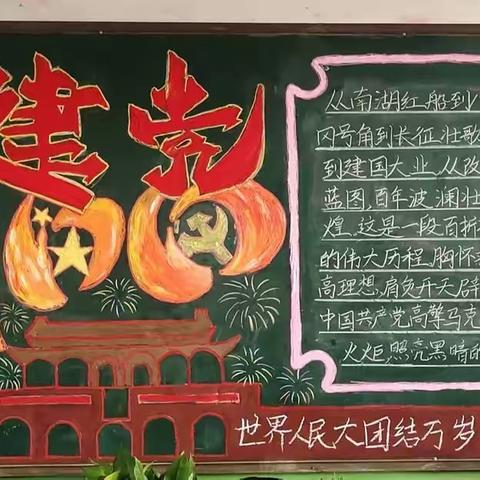 建党
从南湖红船到
闪号角到长征壮歌
到建国大业,从改
蓝图,百年波澜壮
煌,这是一段百折
的伟大历程,胸怀
高理想,肩负开天辟
中国共产党高擎马克
火炬,照亮黑暗的
世界人民大团结万岁